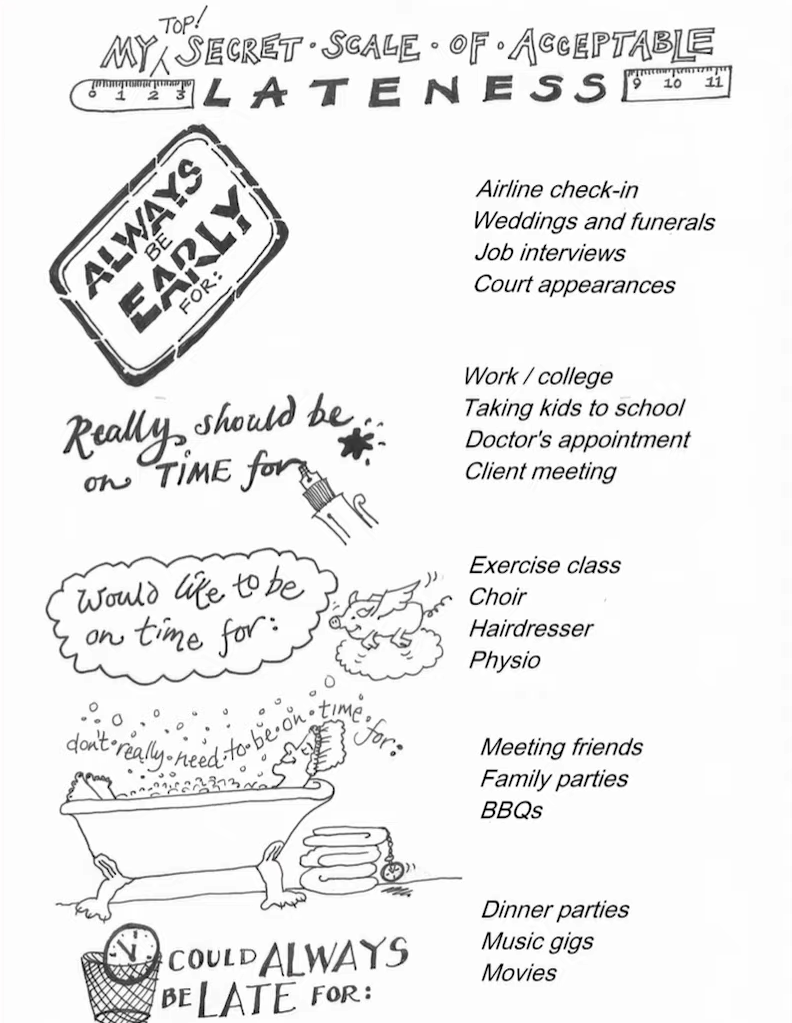 MY TOP! SECRET · SCALE · OF · ACCEPTABLE
0 1 2 3 LATENESS 9 10 11
ALWAYS
BE
EARLY
FOR:
Airline check-in
Weddings and funerals
Job interviews
Court appearances
Really should be
on TIME for
Work / college
Taking kids to school
Doctor's appointment
Client meeting
Would like to be
on time for:
Exercise class
Choir
Hairdresser
Physio
don't · really · need · to · be · on · time · for:
Meeting friends
Family parties
BBQs
COULD ALWAYS
BE LATE FOR:
Dinner parties
Music gigs
Movies